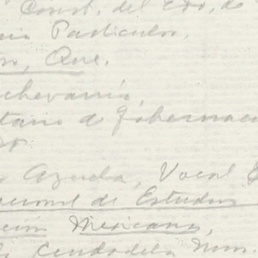 Const. del Edo. de
Particular.
Qro.
Echevarría
tario de Gobernac
Azuela, Vocal
acional de Estudios
Mexicana,
Ciudadela Núm.